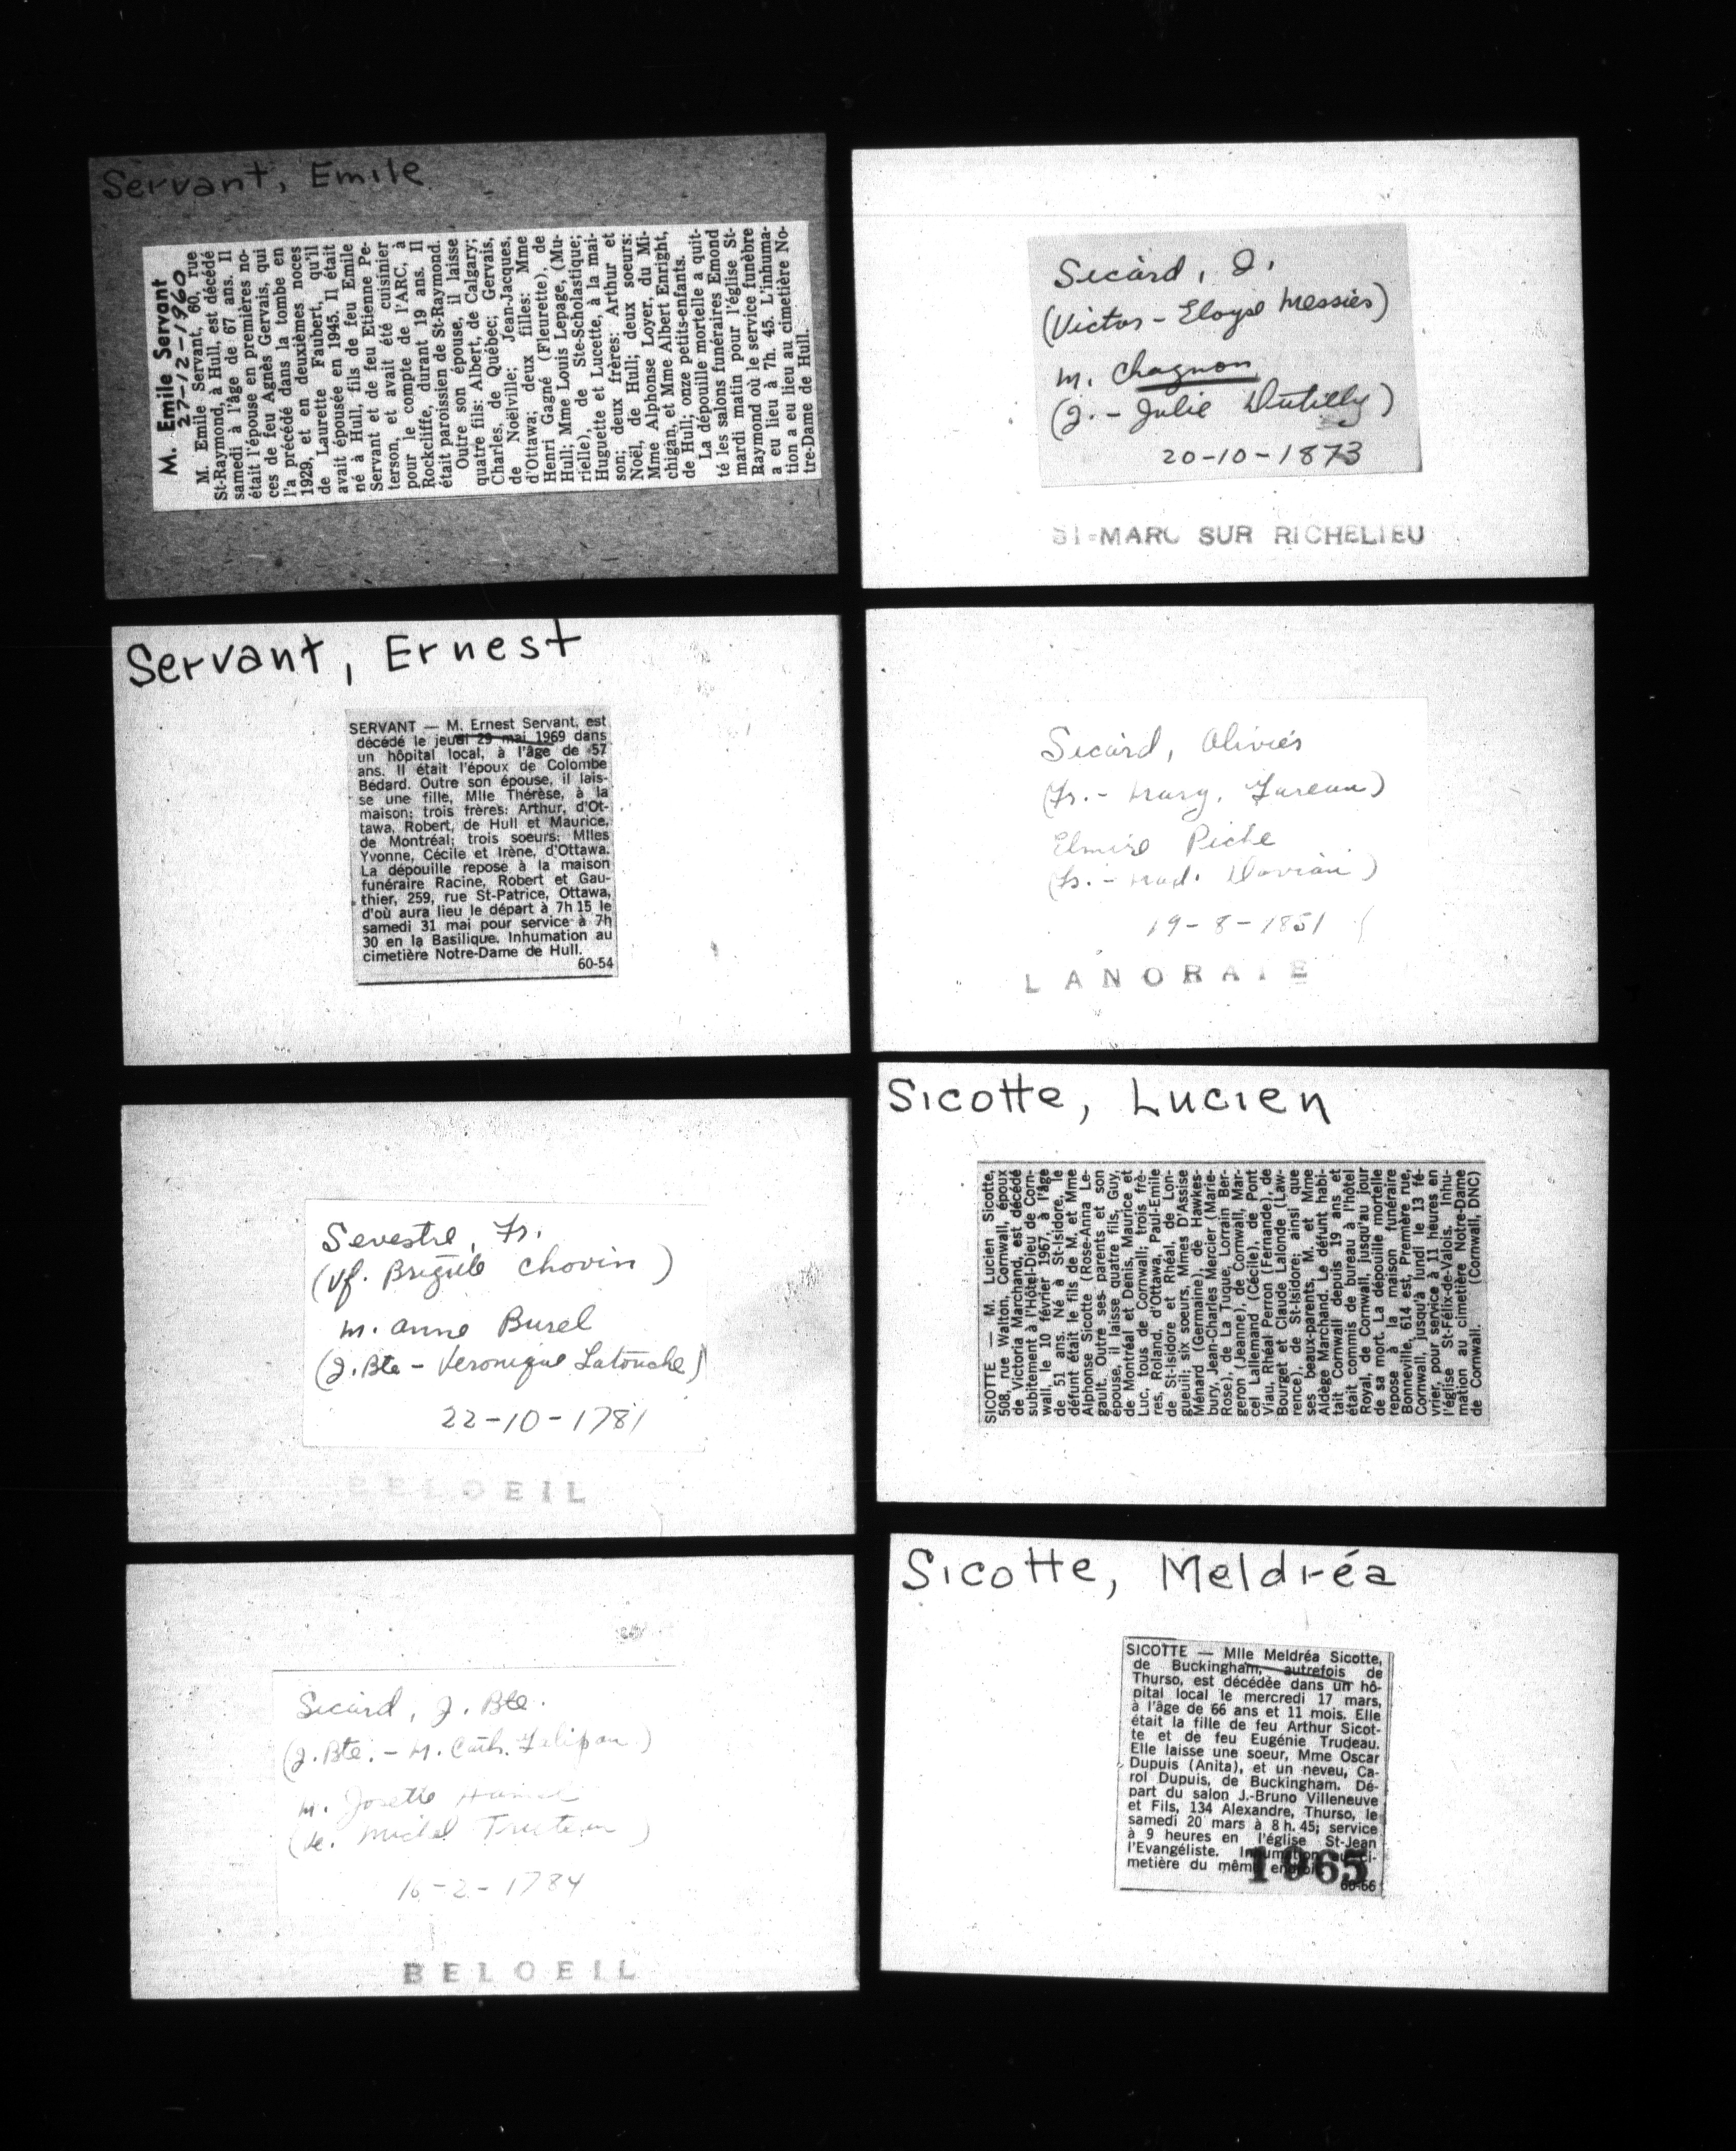 Servant, Emile
M. Emile Servant
27-12-1960
M. Emile Servant, 60, rue
St-Raymond, à Hull, est décédé
samedi à l'âge de 67 ans. Il
était l'épouse en premières no-
ces de feu Agnès Gervais, qui
l'a précédé dans la tombe en
1929, et en deuxièmes noces
de Laurette Faubert, qu'il
avait épousée en 1945. Il était
né à Hull, fils de feu Emile
Servant et de feu Etienne Pe-
terson, et avait été cuisinier
pour le compte de l'ARC, à
Rockcliffe, durant 19 ans. Il
était paroissien de St-Raymond.
Outre son épouse, il laisse
quatre fils: Albert, de Calgary;
Charles, de Québec; Gervais,
de Noëlville; Jean-Jacques,
d'Ottawa; deux filles: Mme
Henri Gagné (Fleurette), de
Hull; Mme Louis Lepage, (Mu-
rielle), de Ste-Scholastique;
Huguette et Lucette, à la mai-
son; deux frères: Arthur et
Noël, de Hull; deux soeurs:
Mme Alphonse Loyer, du Mi-
chigan, et Mme Albert Enright,
de Hull; onze petits-enfants.
La dépouille mortelle a quit-
té les salons funéraires Emond
mardi matin pour l'église St-
Raymond où le service funèbre
a eu lieu à 7h. 45. L'inhuma-
tion a eu lieu au cimetière No-
tre-Dame de Hull.
Servant, Ernest
SERVANT — M. Ernest Servant, est
décédé le jeudi 29 mai 1969 dans
un hôpital local, à l'âge de 57
ans. Il était l'époux de Colombe
Bédard. Outre son épouse, il lais-
se une fille, Mlle Thérèse, à la
maison; trois frères: Arthur, d'Ot-
tawa, Robert, de Hull et Maurice,
de Montréal; trois soeurs: Mlles
Yvonne, Cécile et Irène, d'Ottawa.
La dépouille repose à la maison
funéraire Racine, Robert et Gau-
thier, 259, rue St-Patrice, Ottawa,
d'où aura lieu le départ à 7h 15 le
samedi 31 mai pour service à 7h
30 en la Basilique. Inhumation au
cimetière Notre-Dame de Hull.
60-54
Sevestre, Fr.
(Vf. Brigide Chovin)
m. Anne Burel
(J. Bte - Veronique Latouche)
22-10-1781
BELOEIL
Sicard, J. Bte.
(J. Bte. - M. Cath. Felipau)
m. Josette
(Ve. Michel Truteau)
16-2-1784
BELOEIL
Sicard, J.
(Victor - Eloyse Messier)
m. Chagnon
(J. - Julie Dutilly)
20-10-1873
ST-MARC SUR RICHELIEU
Sicard, Olivier
(Fr. - Marg. Fureau)
Elmire Piche
(Fr. - Mad. )
19-8-1851
LANORAIE
Sicotte, Lucien
SICOTTE — M. Lucien Sicotte,
508, rue Walton, Cornwall, époux
de Victoria Marchand, est décédé
subitement à l'Hôtel-Dieu de Corn-
wall, le 10 février 1967, à l'âge
de 51 ans. Né à St-Isidore, le
défunt était le fils de M. et Mme
Alphonse Sicotte (Rose-Anna Le-
gault. Outre ses parents et son
épouse, il laisse quatre fils, Guy,
de Montréal et Denis, Maurice et
Luc, tous de Cornwall; trois frè-
res, Roland, d'Ottawa, Paul-Emile
de St-Isidore et Rhéal, de Lon-
gueuil; six soeurs, Mmes D'Assise
Ménard (Germaine), de Hawkes-
bury, Jean-Charles Mercier (Marie-
Rose), de La Tuque, Lorrain Ber-
geron (Jeanne), de Cornwall, Mar-
cel Lallemand (Cécile), de Pont
Viau, Rhéal Perron (Fernande), de
Bourget et Claude Lalonde (Law-
rence), de St-Isidore; ainsi que
ses beaux-parents, M. et Mme
Aldège Marchand. Le défunt habi-
tait Cornwall depuis 19 ans et
était commis de bureau à l'hôtel
Royal, de Cornwall, jusqu'au jour
de sa mort. La dépouille mortelle
repose à la maison funéraire
Bonneville, 614 est, Première rue,
Cornwall, jusqu'à lundi le 13 fé-
vrier, pour service à 11 heures en
l'église St-Félix-de-Valois. Inhu-
mation au cimetière Notre-Dame
de Cornwall. (Cornwall, DNC)
Sicotte, Meldréa
SICOTTE — Mlle Meldréa Sicotte,
de Buckingham, autrefois de
Thurso, est décédée dans un hô-
pital local le mercredi 17 mars,
à l'âge de 66 ans et 11 mois. Elle
était la fille de feu Arthur Sicot-
te et de feu Eugénie Trudeau.
Elle laisse une soeur, Mme Oscar
Dupuis (Anita), et un neveu, Ca-
rol Dupuis, de Buckingham. Dé-
part du salon J.-Bruno Villeneuve
et Fils, 134 Alexandre, Thurso, le
samedi 20 mars à 8 h. 45; service
à 9 heures en l'église St-Jean
l'Evangéliste. Inhumation au ci-
metière du même endroit.
1965
66-66